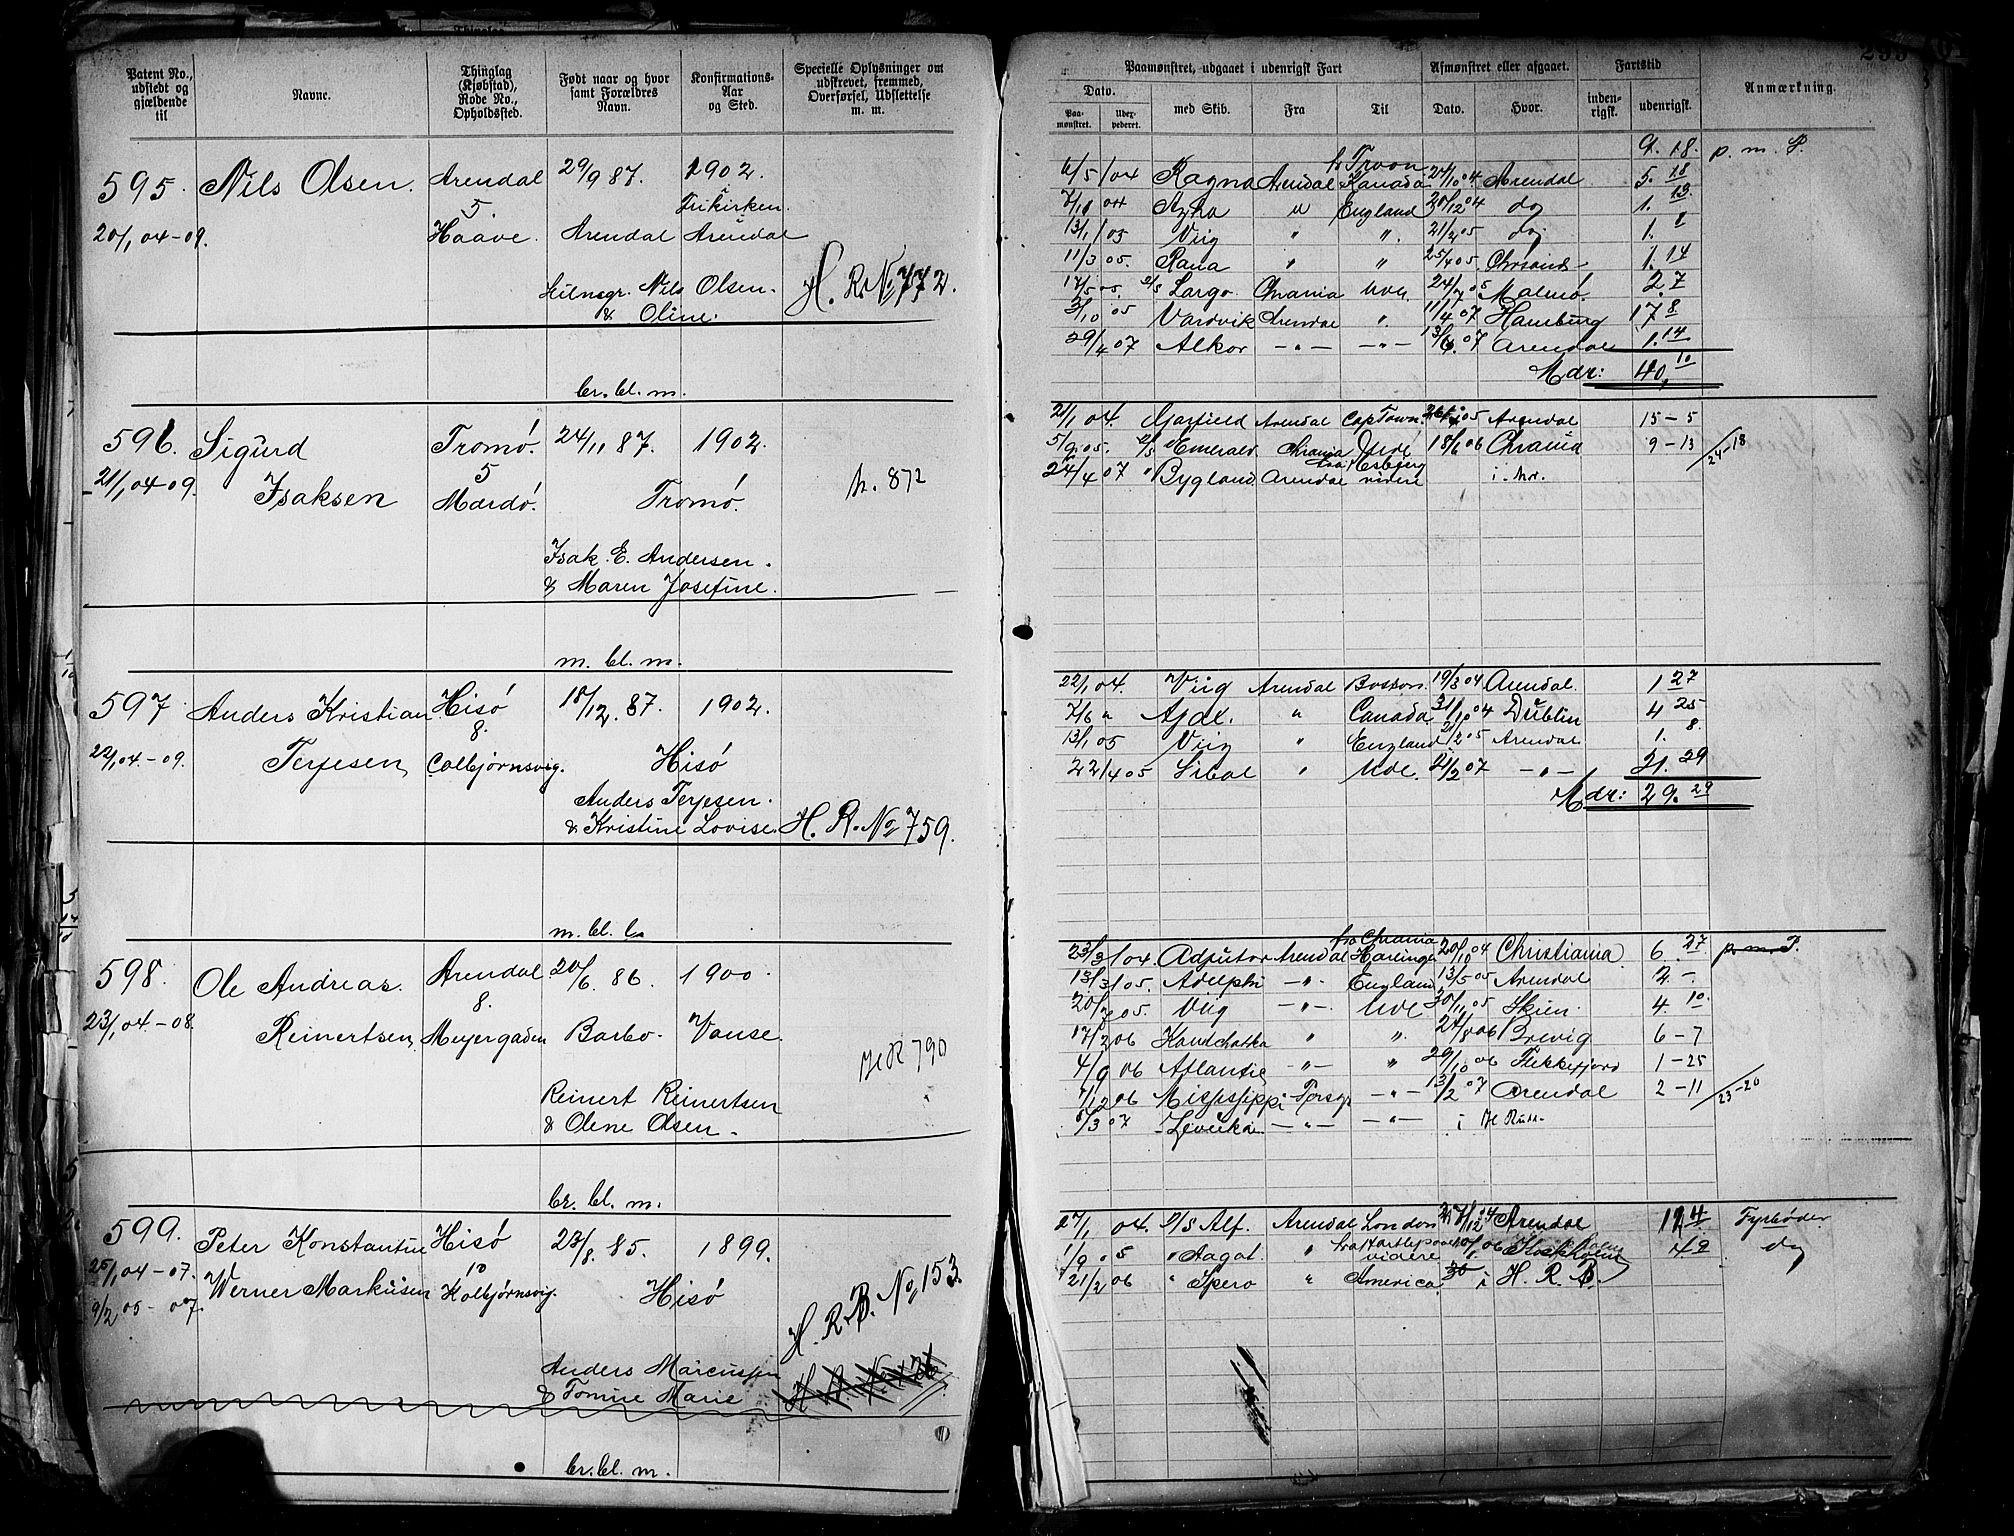 Patent No., udstedt og gjældende til
Navne.
Thinglag (Kjøbstad), Rode No., Opholdssted.
Født naar og hvor samt Forældres Navn.
Konfirmations-Aar og Sted.
Specielle Oplysninger om udskrevet, fremmed, Overførsel, Udslettelse m. m.
595. Nils Olsen. Arendal 29/9 87. 1902.
5. Frikirken.
20/1 04-09. Haave. Arendal Arendal
Nils Olsen. H. R. No 772.
& Oline.
br. bl. m.
596. Sigurd Tromø. 24/11 87. 1902.
21/1 04-09. Isaksen 5 Mardø. Tromø. h. 872
Isak E. Andersen.
& Maren Josefine.
m. bl. m.
597 Anders Kristian Hisø 18/12. 87. 1902.
8.
22/1 04.-09. Terjesen, Colbjørnsvig. Hisø
Anders Terjesen.
& Kristine Lovise. H. R. No 759.
m. bl. b
598. Ole Andreas. Arendal 20/6. 86. 1900.
8.
23/1 04-08. Reinertsen, Meyergaden Barbo. Vanse. HR 790
Reinert Reinertsen
& Olene Olsen.
br. bl. m.
599. Peter Konstantin Hisø 23/8. 85. 1899.
25/1 04-07. Werner Markusen 10 Kolbjørnsvig. Hisø
9/2 05-07. H. R. B. No 153.
Anders Marcussen
& Tomine Marie
br. bl. m.
Paamønstret, udgaaet i udenrigsk Fart
Afmønstret eller afgaaet.
Fartstid
Anmærkning.
Dato.
med Skib.
Fra
Til
Dato.
Hvor.
inden-rigsk.
udenrigsk.
Paa-mønstret.
Udex-pederet.
fr Troon 9. 18. p. m. P.
6/5 04 Ragna Arendal Kanada 24/10 04 Arendal 5. 18
Arendal England 20/12 04 do 1. 13
13/1 05 Viig " " 21/2 05 do 1. 8
11/3 05. Rana " " 25/4 05. Chrsand 1. 14
17/5 05. D/S Largo. Chrania Udl. 24/7 05 Malmø. 2. 7
3/10 05 Vardvik Arendal " 11/4 07 Hamburg 17 8
29/4 07 Alkor -"- -"- 13/6. 07 Arendal 1. 14
Mdr: 40, 10
21/1 04. Garfield Arendal Cap Town. 05 Arendal 15-5
5/9. 05. D/S Emerald. Chrania Ude 18/6 06 Chrania 9-13 24-18
24/4 07 " Bygland Arendal fra Esbjerg videre i. hor.
22/1 04. Viig Arendal Boston. 19/3 04 Arendal. 1 27
7/6 " Ajax. " Canada 31/10 04 Dublin 4 25
13/1 05 Viig " England 21/2 05 Arendal 1. 8
22/4 05 Sirbal " Ude. 21/2 07 -"- 21. 29
Mdr: 29. 29
23/3 04. Adjutor Arendal fra Chrania 20/10 04 Christiania 6. 27 p. m. P.
13/3 05. Adelphi -"- England, 13/5 05 Arendal 2. -
20/7 05. Viig -"- Ude 30/11 05 Skien. 4. 10.
17/2 06 Kamchatka " ". 24/8 06 Brevig 6-7
4/9 06 Atlantic -"- " 29/10 06 Flekkefjord 1-25
1/12 06 Missisippi Porsgr -"- 13/2 07 Arendal 2-11 23-20
8/3 07 Levuka -"- -"- i H Rull
27/1 04. D/S Alf. Arendal London 27/12 04 Arendal 12 4 Fyrbøder
1/9 05 " Aagot. " fra Hartlepool videre 06 Stockholm 4 2 do
21/2 06 " Spero " America. i H. R. B.